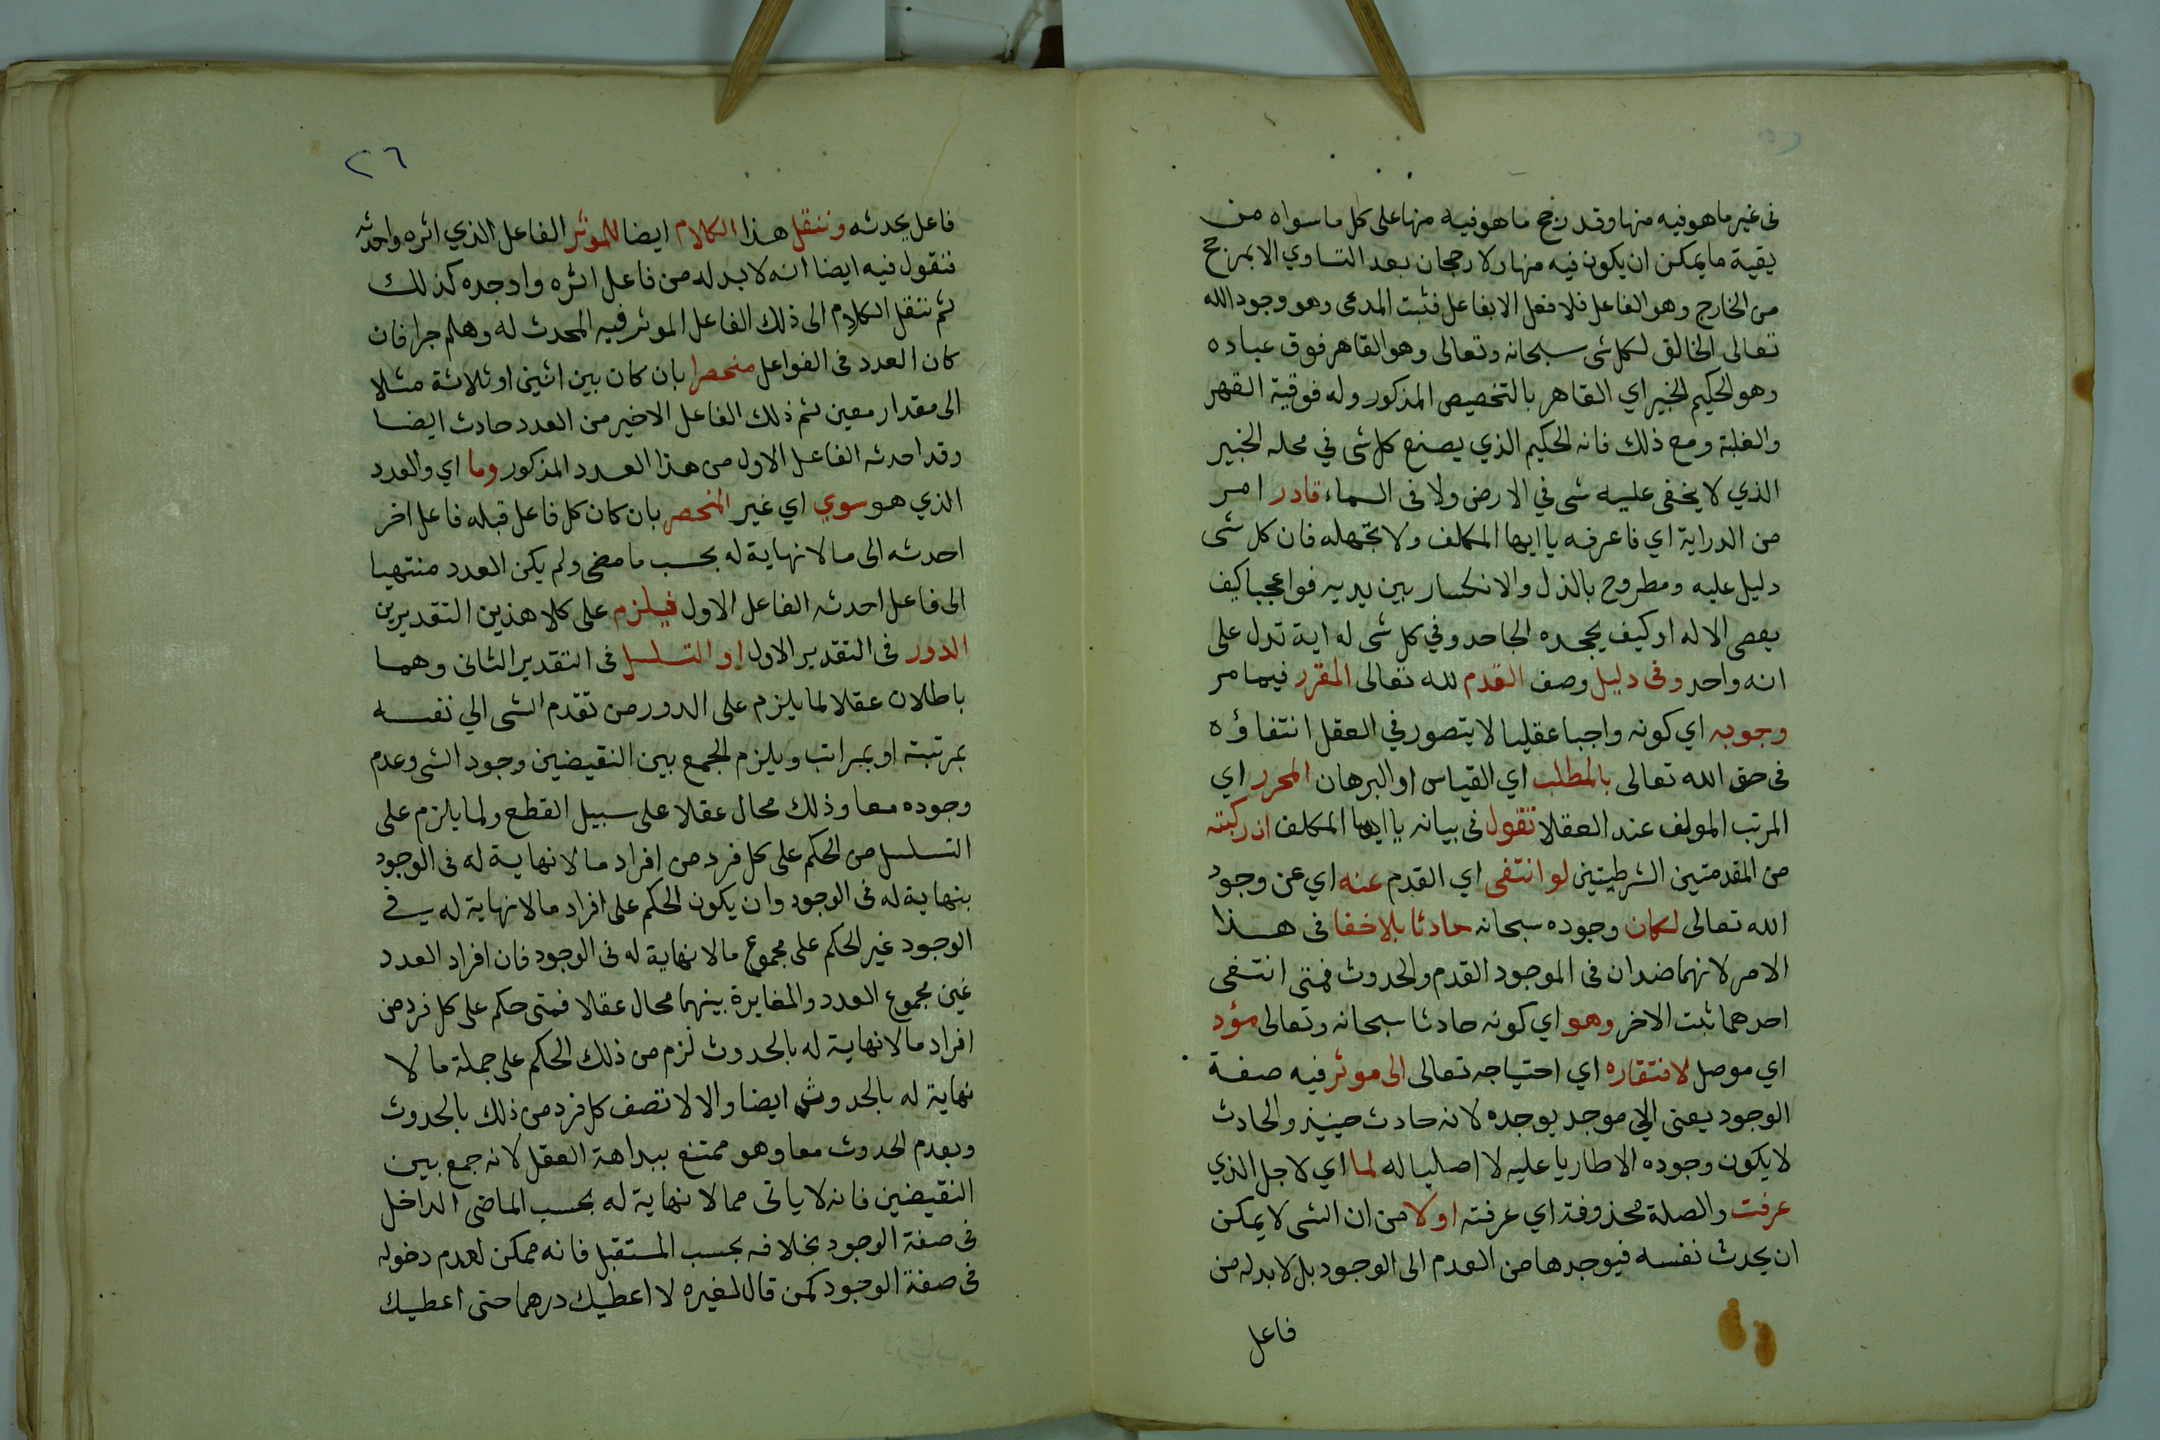 فى غير ما هو فيه منها وقد رجح ما هو فيه منها على كل ما سواه من
بقية ما يمكن ان يكون فيه منها ولا رجحان بعد التساوي الا بمرجح
من الخارج وهو الفاعل فلا فعل الا بفاعل فثبت المدعى وهو وجود الله
تعالى الخالق لكل شى سبحانه وتعالى وهو القاهر فوق عباده
وهو الحكيم الخبير اي القاهر بالتخصيص المذكور وله فوقية القهر
والغلبة ومع ذلك فانه الحكيم الذي يصنع كل شى في محله الخبير
الذي لا يخفى عليه شى في الارض ولا فى السماء فادر امر
من الدراية اي فاعرفه يا ايها المكلف ولا تجهله فان كل شى
دليل عليه ومطروح بالذل والانكسار بين يديه فواعجبا كيف
يعصى الاله او كيف يجحده الجاحد وفي كل شى له اية تدل على
انه واحد وفى دليل وصف القدم لله تعالى المقرر فيما مر
وجوبه اي كونه واجبا عقليا لا يتصور في العقل انتفاؤه
فى حق الله تعالى بالمطلب اي القياس او البرهان المحرر اي
المرتب المولف عند العقلا نقول فى بيانه يا ايها المكلف ان ركبته
من المقدمتين الشرطيتين لو انتفى اي القدم عنه اي عن وجود
الله تعالى لكان وجوده سبحانه حادثا بلا خفا فى هذا
الامر لانهما ضدان فى الموجود القدم والحدوث فمتى انتفى
احدهما ثبت الاخر وهو اي كونه حادثا سبحانه وتعالى مؤد
اي موصل لافتقاره اي احتياجه تعالى الى موثر فيه صفة
الوجود يعنى الي موجد يوجده لانه حادث حينيذ والحادث
لا يكون وجوده الا طاريا عليه لا اصليا له لما اي لاجل الذي
عرفت والصلة محذوفة اي عرفته اولا من ان الشى لا يمكن
ان يحدث نفسه فيوجدها من العدم الى الوجود بل لا بد له من
فاعل
٢٦
فاعل يحدثه وننقل هذا الكلام ايضا للموثر الفاعل الذي اثره واحدثه
فنقول فيه ايضا انه لا بد له من فاعل اثره واوجده كذلك
ثم ننقل الكلام الى ذلك الفاعل الموثر فيه المحدث له وهلم جرا فان
كان العدد فى الفواعل منحصرا بان كان بين اثنين او ثلاثة مثلا
الى مقدار معين ثم ذلك الفاعل الاخير من العدد حادث ايضا
وقد احدثه الفاعل الاول من هذا العدد المذكور وما اي والعدد
الذي هو سوي اي غير المنحصر بان كان كل فاعل قبله فاعل اخر
احدثه الى ما لا نهاية له بحسب ما مضى ولم يكن العدد منتهيا
الى فاعل احدثه الفاعل الاول فيلزم على كلا هذين التقديرين
الدور فى التقدير الاول او التسلسل فى التقدير الثانى وهما
باطلان عقلا لما يلزم على الدور من تقدم الشى الي نفسه
بمرتبته او بمراتب ويلزم الجمع بين النقيضين وجود الشى وعدم
وجوده معا وذلك محال عقلا على سبيل القطع ولما يلزم على
التسلسل من الحكم على كل فرد من افراد ما لا نهاية له فى الوجود
بنهاية له فى الوجود وان يكون الحكم على افراد ما لا نهاية له في
الوجود غير الحكم على مجموع ما لا نهاية له فى الوجود فان افراد العدد
عين مجموع العدد والمغايرة بينهما محال عقلا فمتى حكم على كل فرد من
افراد ما لا نهاية له بالحدوث لزم من ذلك الحكم على جملة ما لا
نهاية له بالحدوث ايضا والا لاتصف كل فرد من ذلك بالحدوث
وبعدم الحدوث معا وهو ممتنع ببداهة العقل لانه جمع بين
النقيضين فانه لا ياتى مما لا نهاية له بحسب الماضى الداخل
فى صفة الوجود بخلافه بحسب المستقبل فانه ممكن لعدم دخوله
فى صفة الوجود كمن قال لغيره لا اعطيك درهما حتى اعطيك